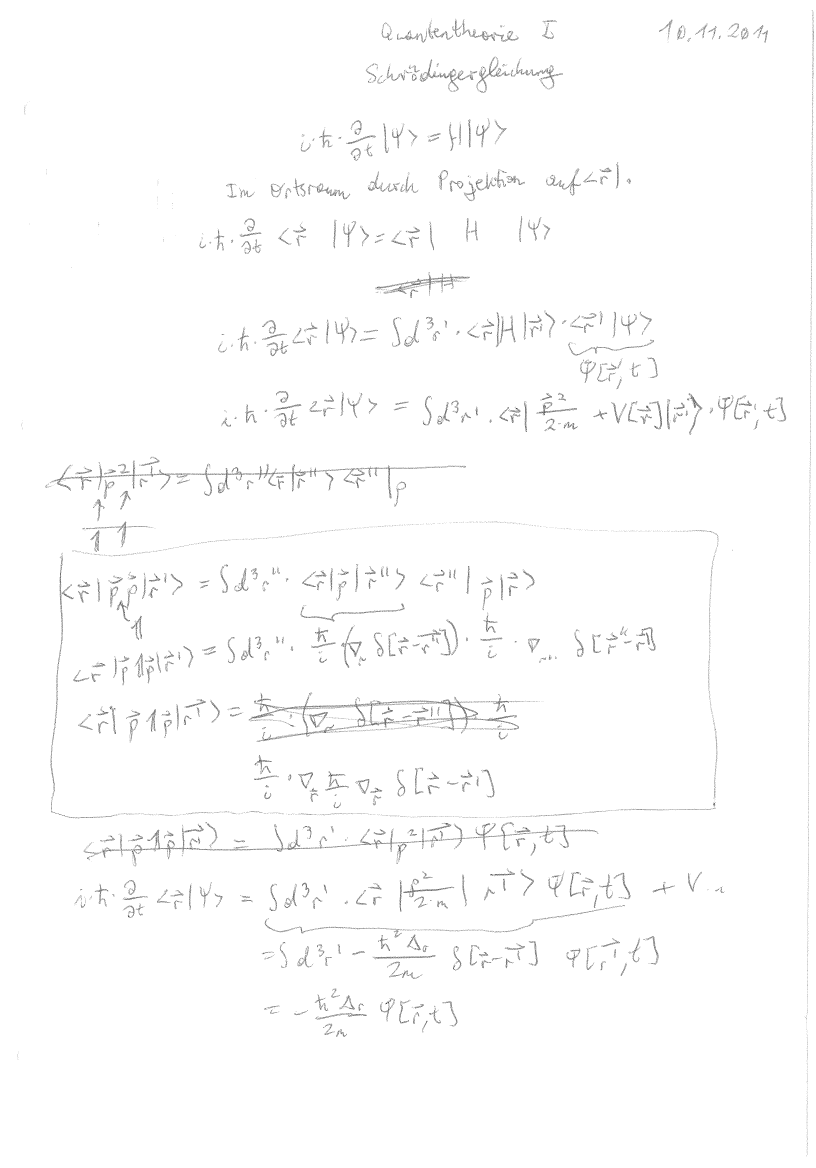 Quantentheorie I 10.11.2011
Schrödingergleichung
i·ħ·∂/∂t |Ψ> = H|Ψ>
Im Ortsraum durch Projektion auf <r⃗|.
i·ħ·∂/∂t <r⃗ |Ψ> = <r⃗| H |Ψ>
i·ħ·∂/∂t <r⃗|Ψ> = ∫d³r'·<r⃗|H|r⃗'>·<r⃗'|Ψ>
Ψ[r⃗', t]
i·ħ·∂/∂t <r⃗|Ψ> = ∫d³r'·<r⃗| p⃗²/2·m + V[r⃗]|r⃗'>·Ψ[r⃗', t]
<r⃗|p⃗²|r⃗'> = ∫d³r''<r⃗|r⃗''> <r⃗''|p
↑ ↑
1 1
<r⃗|p⃗ p⃗|r⃗'> = ∫d³r''·<r⃗|p⃗|r⃗''> <r⃗''|p⃗|r⃗>
1
<r⃗|p⃗ 1 p⃗|r⃗'> = ∫d³r''·ħ/i·(∇r δ[r⃗-r⃗''])·ħ/i·∇r'' δ[r⃗''-r⃗']
<r⃗|p⃗ 1 p⃗|r⃗'> = ħ/i·(∇r δ[r⃗-r⃗'']) ħ/i
ħ/i·∇r⃗ ħ/i ∇r⃗ δ[r⃗-r⃗']
<r⃗|p⃗ 1 p⃗|r⃗'> = ∫d³r'·<r⃗|p²|r⃗'> Ψ[r⃗, t]
i·ħ·∂/∂t <r⃗|Ψ> = ∫d³r'·<r⃗|p²/2·m| r⃗'> Ψ[r⃗, t] + V...
= ∫d³r' - ħ²Δr/2m δ[r⃗-r⃗'] Ψ[r⃗', t]
= - ħ²Δr/2m Ψ[r⃗, t]